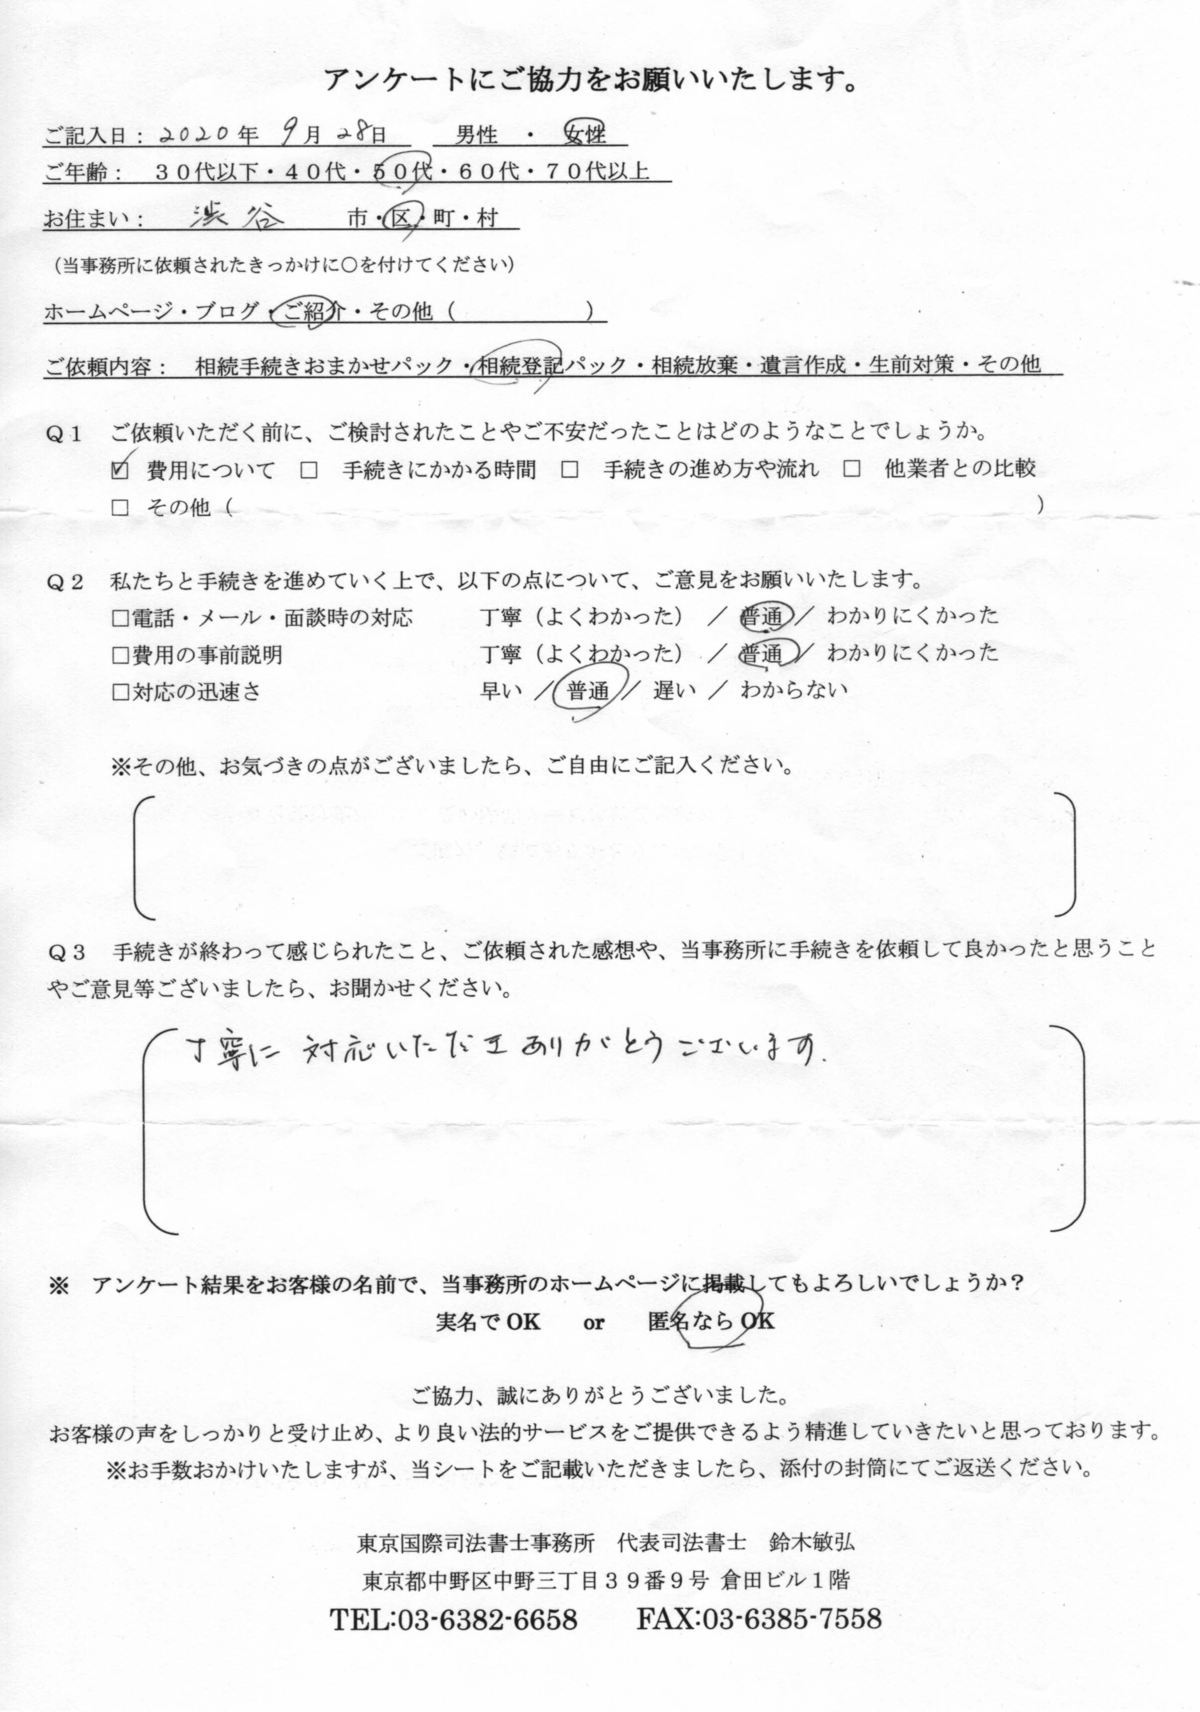 アンケートにご協力をお願いいたします。
ご記入日：2020年 9月 28日　男性 ・ 女性
ご年齢： ３０代以下・４０代・５０代・６０代・７０代以上
お住まい： 渋谷 市・区・町・村
（当事務所に依頼されたきっかけに○を付けてください）
ホームページ・ブログ・ご紹介・その他（　　　　　　）
ご依頼内容： 相続手続きおまかせパック・相続登記パック・相続放棄・遺言作成・生前対策・その他
Ｑ１　ご依頼いただく前に、ご検討されたことやご不安だったことはどのようなことでしょうか。
☑ 費用について □ 手続きにかかる時間 □ 手続きの進め方や流れ □ 他業者との比較
□ その他（　　　　　　）
Ｑ２　私たちと手続きを進めていく上で、以下の点について、ご意見をお願いいたします。
□電話・メール・面談時の対応　丁寧（よくわかった） ／ 普通 ／ わかりにくかった
□費用の事前説明　丁寧（よくわかった） ／ 普通 ／ わかりにくかった
□対応の迅速さ　早い ／ 普通 ／ 遅い ／ わからない
※その他、お気づきの点がございましたら、ご自由にご記入ください。
Ｑ３　手続きが終わって感じられたこと、ご依頼された感想や、当事務所に手続きを依頼して良かったと思うこと
やご意見等ございましたら、お聞かせください。
丁寧に対応いただきありがとうございます.
※　アンケート結果をお客様の名前で、当事務所のホームページに掲載してもよろしいでしょうか？
実名で OK　or　匿名なら OK
ご協力、誠にありがとうございました。
お客様の声をしっかりと受け止め、より良い法的サービスをご提供できるよう精進していきたいと思っております。
※お手数おかけいたしますが、当シートをご記載いただきましたら、添付の封筒にてご返送ください。
東京国際司法書士事務所　代表司法書士　鈴木敏弘
東京都中野区中野三丁目３９番９号 倉田ビル１階
TEL:03-6382-6658　FAX:03-6385-7558